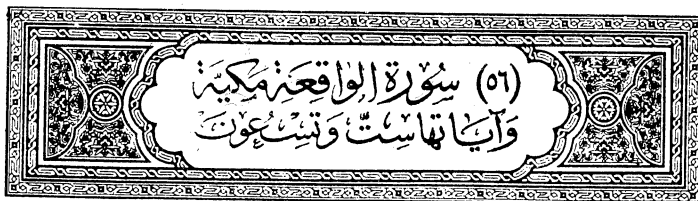 (٥٦) سُورَة الوَاقِعَةِ مَكيَّة
وَآيَاتهَا سِتٌّ وَتِسْعُونَ